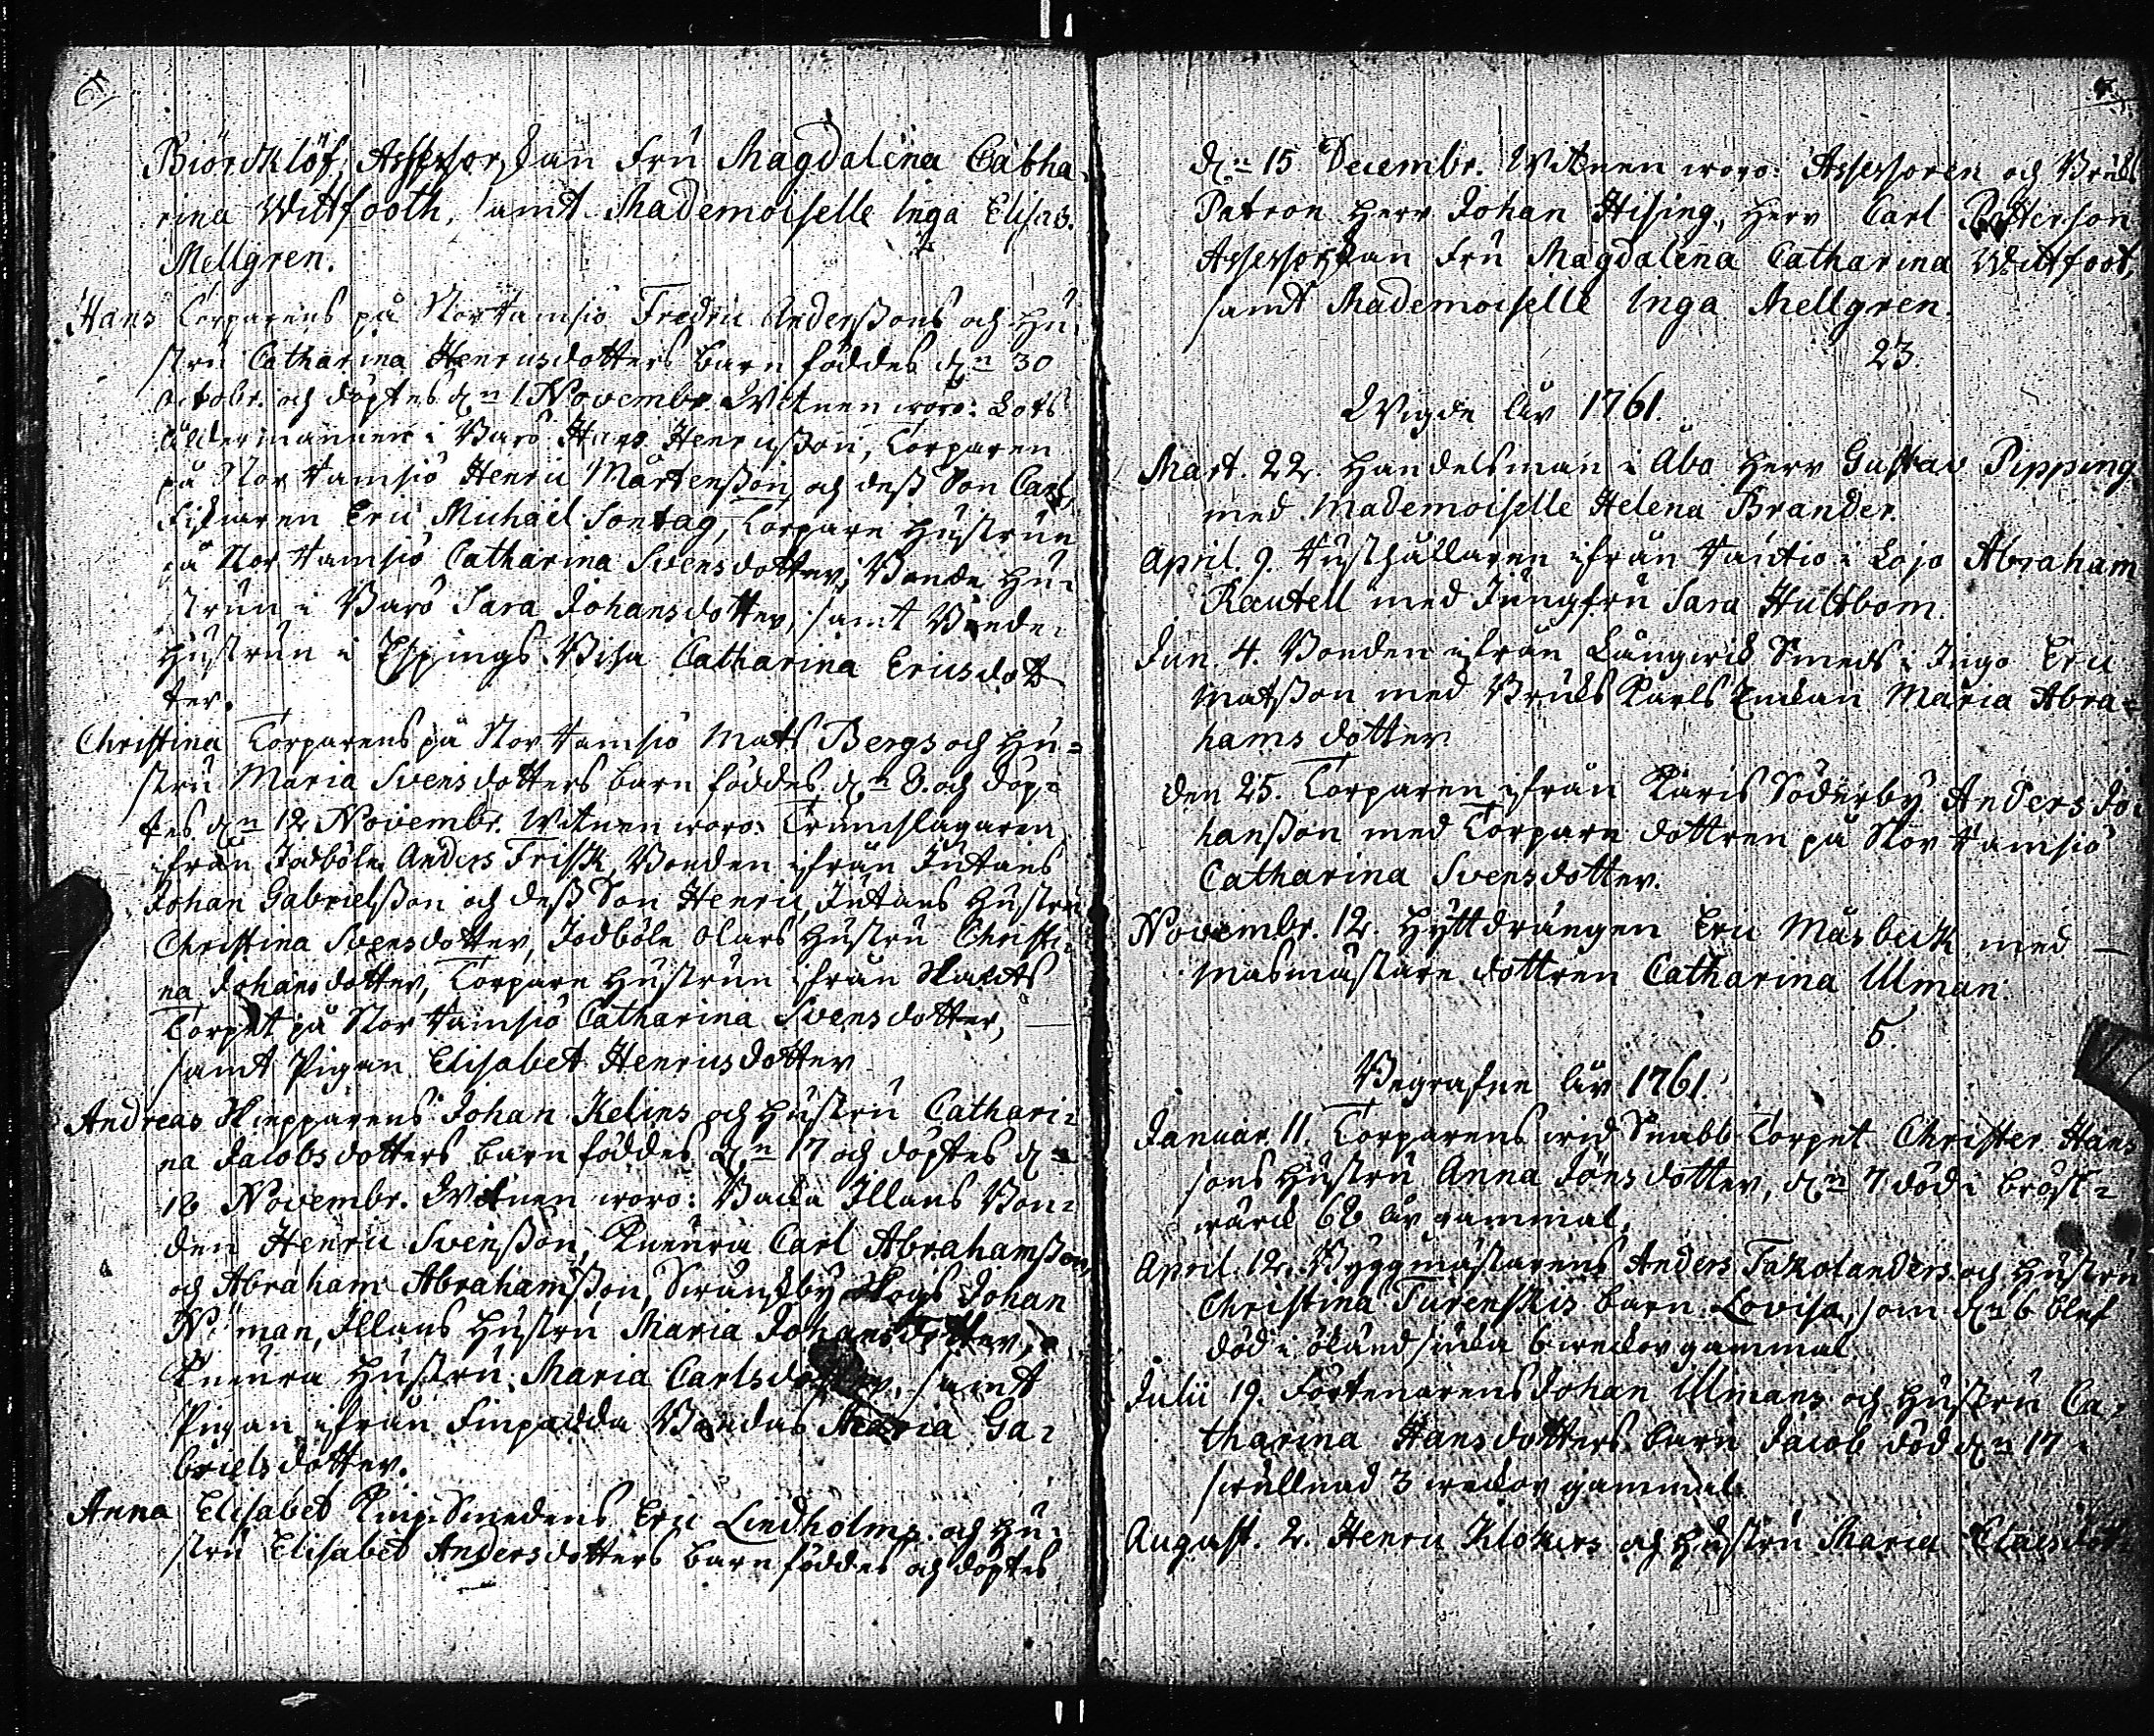 Biörsklöf, Assessorskan Fru Magdalena Catha-
rina Wittfooth, samt Mademoiselle Inga Elisab.
Mellgren.
Hans Torparens på Stor Ramsiö Fredric Anderssons och Hu-
stru Catharina Henricsdotters barn föddes d:n 30
Octobr. och döptes d:n 1 Novembr. Witnen woro: Lots
åldermannen i Barö Hans Henricsson, Torparen
på Stor Ramsiö Henric Mårtensson, och dess Son Carl,
Fiskaren Eric Michaël Sontag, Torpare Hustrun
på Stor Ramsiö Catharina Svensdotter, Bonde Hu-
strun i Barö Sara Johansdotter, samt Bonde
Hustrun i Espings Catharina Ericsdot
ter.
Christina Torparens på Stor Ramsiö Mats Bergs och Hu=
stru Maria Svensdotters barn föddes d:n 8. och döp-
tes d:n 12 Novembr. Witnen woro: Trumslagaren
ifrån Jodböle Anders Frisk, Bonden ifrån Jutans
Johan Gabrielsson och dess Son Henric, Jutans Hustru
Christina Svensdotter, Jodböle Olars Hustru Christi-
na Johansdotter, Torpare Hustrun ifrån
Torpet på Stor Ramsiö Catharina Svensdotter,
samt Pigan Elisabet Henricsdotter
Andreas Skepparens Johan Kelins och Hustru Cathari-
na Jacobsdotters barn föddes d:n 17 och döptes d:n
18 Novembr. Witnen woro: Backa Illans Bon-
den Henric Svensson, Carl Abrahamsson,
och Abraham Abrahamsson, Skogs Johan
man, Illans Hustru Maria Johansdotter,
Hustru Maria Carlsdotter, samt
Pigan ifrån Finpadda Bondas Maria Ga-
brielsdotter.
Anna Elisabet Knip Smedens Eric Lindholms och Hu-
stru Elisabet Andersdotters barn föddes och döptes
d:n 15 Decembr. Witnen woro: Assessoren och Bruks
Patron Herr Johan Hising, Herr Carl Petterson
Assessorskan Fru Magdalena Catharina Wittfoot,
samt Mademoiselle Inga Mellgren.
23.
Wigde åhr 1761.
Mart. 22. Handelsman i Åbo Herr Gustav Pipping
med Mademoiselle Helena Brander.
April. 9. Rusthållaren ifrån i Lojo Abraham
Reutell med Jungfru Sara Hultbom.
Jun. 4. Bonden ifrån Långwik Smeds i Ingo Eric
Matsson med Bruks Karls Enkan Maria Abra=
hams dotter
den 25. Torparen ifrån Karis Söderby Anders Jo-
hansson med Torpare dottren på Stor Ramsiö
Catharina Svensdotter.
Novembr. 12. Hyttdrängen Eric Måsbeck med
Masmästare dottren Catharina Ulman.
5.
Begrafne åhr 1761.
Januar. 11. Torparens wid Snabb Torpet Christer Hans
sons Hustru Anna Jönsdotter, d:n 7 död i bröst-
wärck 68 åhr gammal.
April. 12. Byggmästarens Anders Takolanders och Hustru
Christina Turenskis barn Lovisa, som d:n 6 blef
död i okänd siuka 6 weckor gammal
Julii 19. Förtenarens Johan Ulmans och Hustru Ca-
tharina Hansdotters barn Jacob död d:n 17 i
swullnad 3 weckor gammal
August. 2. Henric Klokars och Hustru Maria Claesdot-